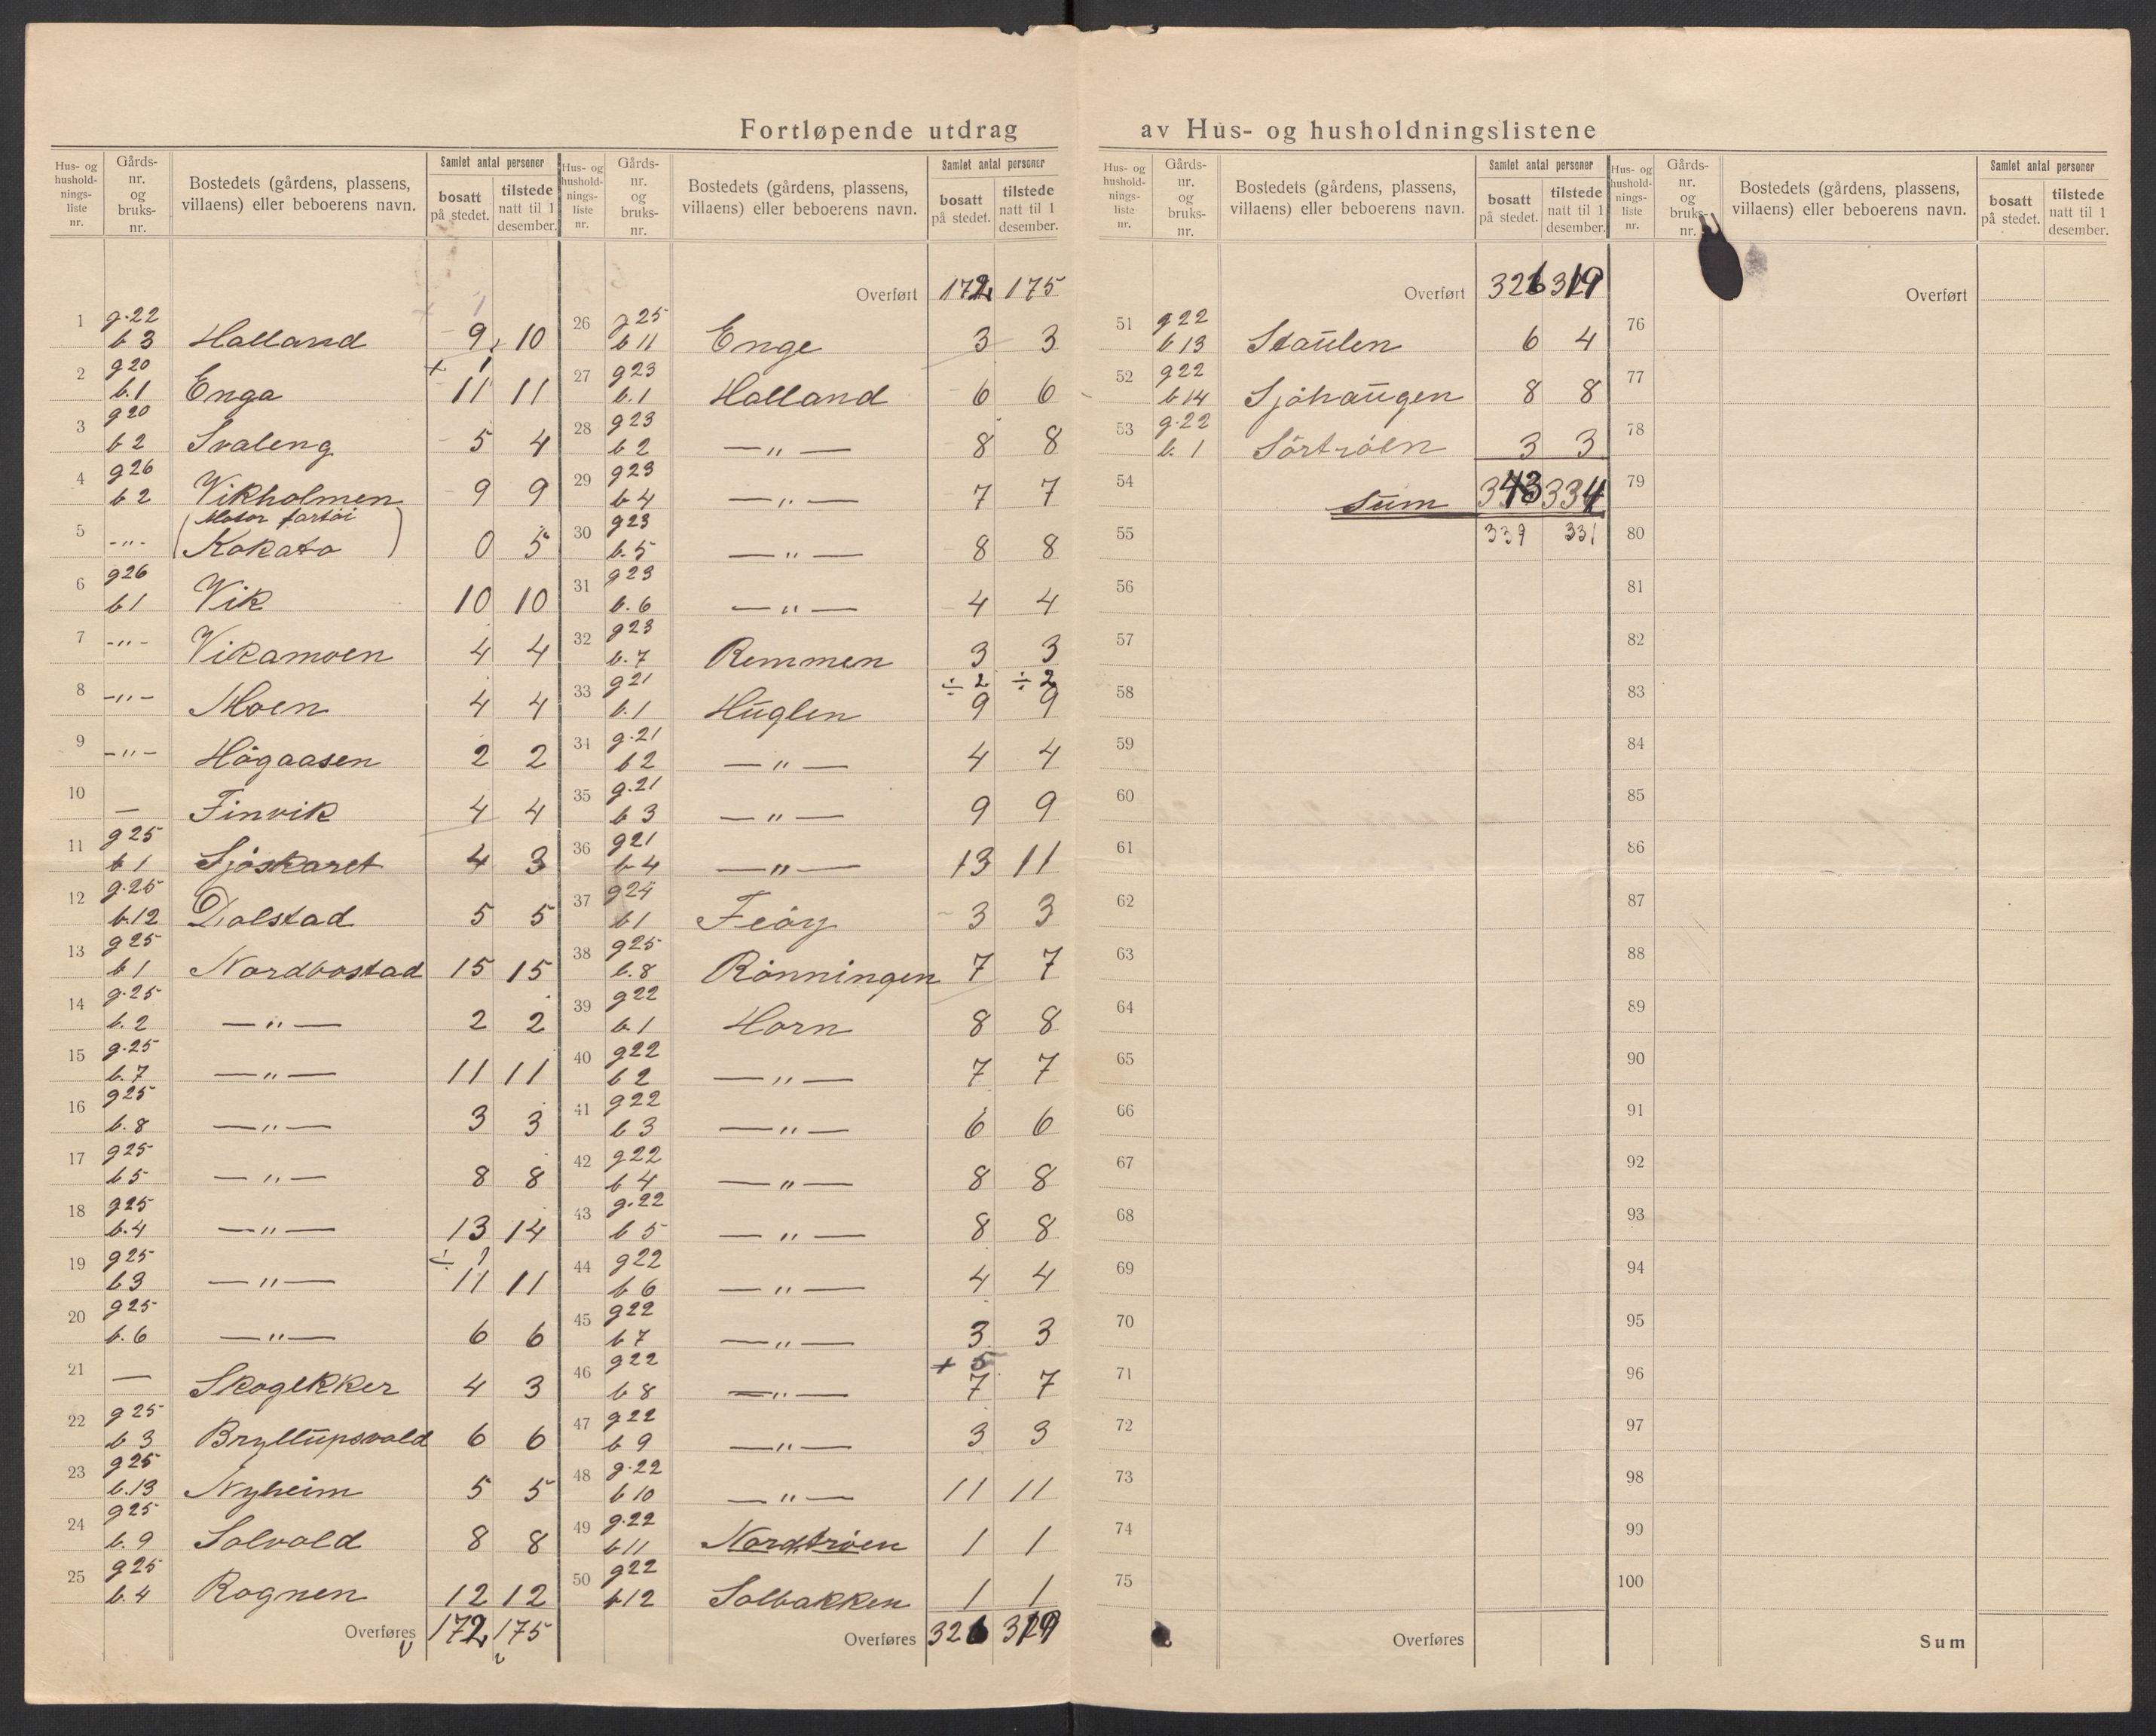 Fortløpende utdrag av Hus- og husholdningslistene
Hus- og hushold-nings-liste nr. | Gårds-nr. og bruks-nr. | Bostedets (gårdens, plassens, villaens) eller beboerens navn. | Samlet antal personer | bosatt på stedet. | tilstede natt til 1 desember.
1 g.22 b 3 Halland 9 10
+ 1
2 g20 b.1 Enga 11 11
3 g20 b 2 Svaleng 5 4
4 g26 b 2 Vikholmen 9 9
5 -"- (Motor fartöi Kakato) 0 5
6 g26 b 1 Vik 10 10
7 -"- Vikamoen 4 4
8 -"- Moen 4 4
9 -"- Högaasen 2 2
10 — Finvik 4 4
11 g25 b 1 Sjöskaret 4 3
12 g.25 b.12 Dalstad 5 5
13 g25 b 1 Nordbostad 15 15
14 g.25 b.2 —"— 2 2
15 g.25 b.7 —"— 11 11
16 g25 b.8 —"— 3 3
17 g25 b 5 —"— 8 8
18 g25 b.4 —"— 13 14
÷ 1
19 g25 b 3 —"— 11 11
20 g25 b.6 —"— 6 6
21 — Skogekker 4 3
22 g25 b 3 Bryllupsvold 6 6
23 g25 b.13 Nyheim 5 5
24 g25 b.9 Solvold 8 8
25 g25 b.4 Rognen 12 12
Overføres 172 175
Hus- og hushold-nings-liste nr. | Gårds-nr. og bruks-nr. | Bostedets (gårdens, plassens, villaens) eller beboerens navn. | Samlet antal personer | bosatt på stedet. | tilstede natt til 1 desember.
Overført 172 175
26 g25 b 11 Enge 3 3
27 g23 b.1 Halland 6 6
28 g23 b 2 —"— 8 8
29 g23 b 4 —"— 7 7
30 g23 b.5 —"— 8 8
31 g23 b.6 —"— 4 4
32 g23 b.7 Remmen 3 3
÷ 2 ÷ 2
33 g21 b.1 Huglen 9 9
34 g.21 b 2 —"— 4 4
35 g.21 b 3 —"— 9 9
36 g21 b 4 —"— 13 11
37 g24 b 1 Feöy 3 3
38 g25 b.8 Rönningen 7 7
39 g22 b.1 Horn 8 8
40 g22 b 2 —"— 7 7
41 g22 b 3 —"— 6 6
42 g22 b 4 —"— 8 8
43 g.22 b 5 —"— 8 8
44 g22 b 6 —"— 4 4
45 g22 b 7 —"— 3 3
+ 5
46 g22 b 8 —"— 7 7
47 g22 b 9 —"— 3 3
48 g.22 b 10 —"— 11 11
49 g.22 b 11 Nordtröen 1 1
50 g22 b 12 Solbakken 1 1
Overføres 326 319
Hus- og hushold-nings-liste nr. | Gårds-nr. og bruks-nr. | Bostedets (gårdens, plassens, villaens) eller beboerens navn. | Samlet antal personer | bosatt på stedet. | tilstede natt til 1 desember.
Overført 326 319
51 g22 b 13 Staulen 6 4
52 g22 b 14 Sjöhaugen 8 8
53 g.22 b.1 Sörtröen 3 3
54 Sum 343 334
55 339 331
56
57
58
59
60
61
62
63
64
65
66
67
68
69
70
71
72
73
74
75
Overføres
Hus- og hushold-nings-liste nr. | Gårds-nr. og bruks-nr. | Bostedets (gårdens, plassens, villaens) eller beboerens navn. | Samlet antal personer | bosatt på stedet. | tilstede natt til 1 desember.
Overført
76
77
78
79
80
81
82
83
84
85
86
87
88
89
90
91
92
93
94
95
96
97
98
99
100
Sum